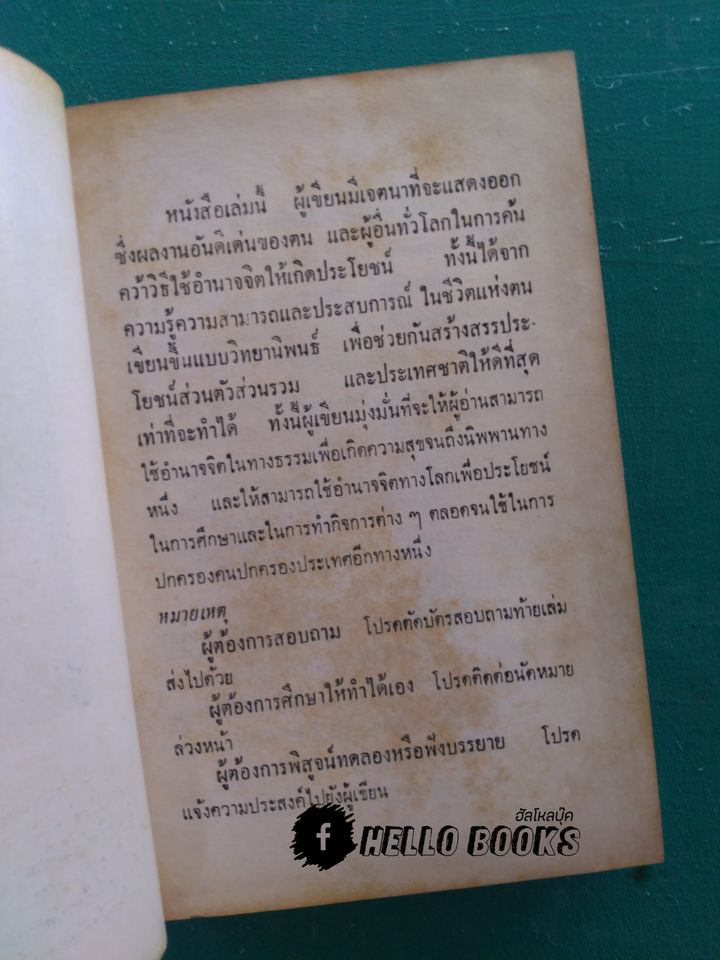 หนังสือเล่มนี้ ผู้เขียนมีเจตนาที่จะแสดงออก
ซึ่งผลงานอันดีเด่นของตน และผู้อื่นทั่วโลกในการค้น
คว้าวิธีใช้อำนาจจิตให้เกิดประโยชน์ ทั้งนี้ได้จาก
ความรู้ความสามารถและประสบการณ์ ในชีวิตแห่งตน
เขียนขึ้นแบบวิทยานิพนธ์ เพื่อช่วยกันสร้างสรรประ-
โยชน์ส่วนตัวส่วนรวม และประเทศชาติให้ดีที่สุด
เท่าที่จะทำได้ ทั้งนี้ผู้เขียนมุ่งมั่นที่จะให้ผู้อ่านสามารถ
ใช้อำนาจจิตในทางธรรมเพื่อเกิดความสุขจนถึงนิพพานทาง
หนึ่ง และให้สามารถใช้อำนาจจิตทางโลกเพื่อประโยชน์
ในการศึกษาและในการทำกิจการต่าง ๆ ตลอดจนใช้ในการ
ปกครองคนปกครองประเทศอีกทางหนึ่ง
หมายเหตุ
ผู้ต้องการสอบถาม โปรดตัดบัตรสอบถามท้ายเล่ม
ส่งไปด้วย
ผู้ต้องการศึกษาให้ทำได้เอง โปรดติดต่อนัดหมาย
ล่วงหน้า
ผู้ต้องการพิสูจน์ทดลองหรือฟังบรรยาย โปรด
แจ้งความประสงค์ไปยังผู้เขียน
ฮัลโหลบุ๊ค
f HELLO BOOKS